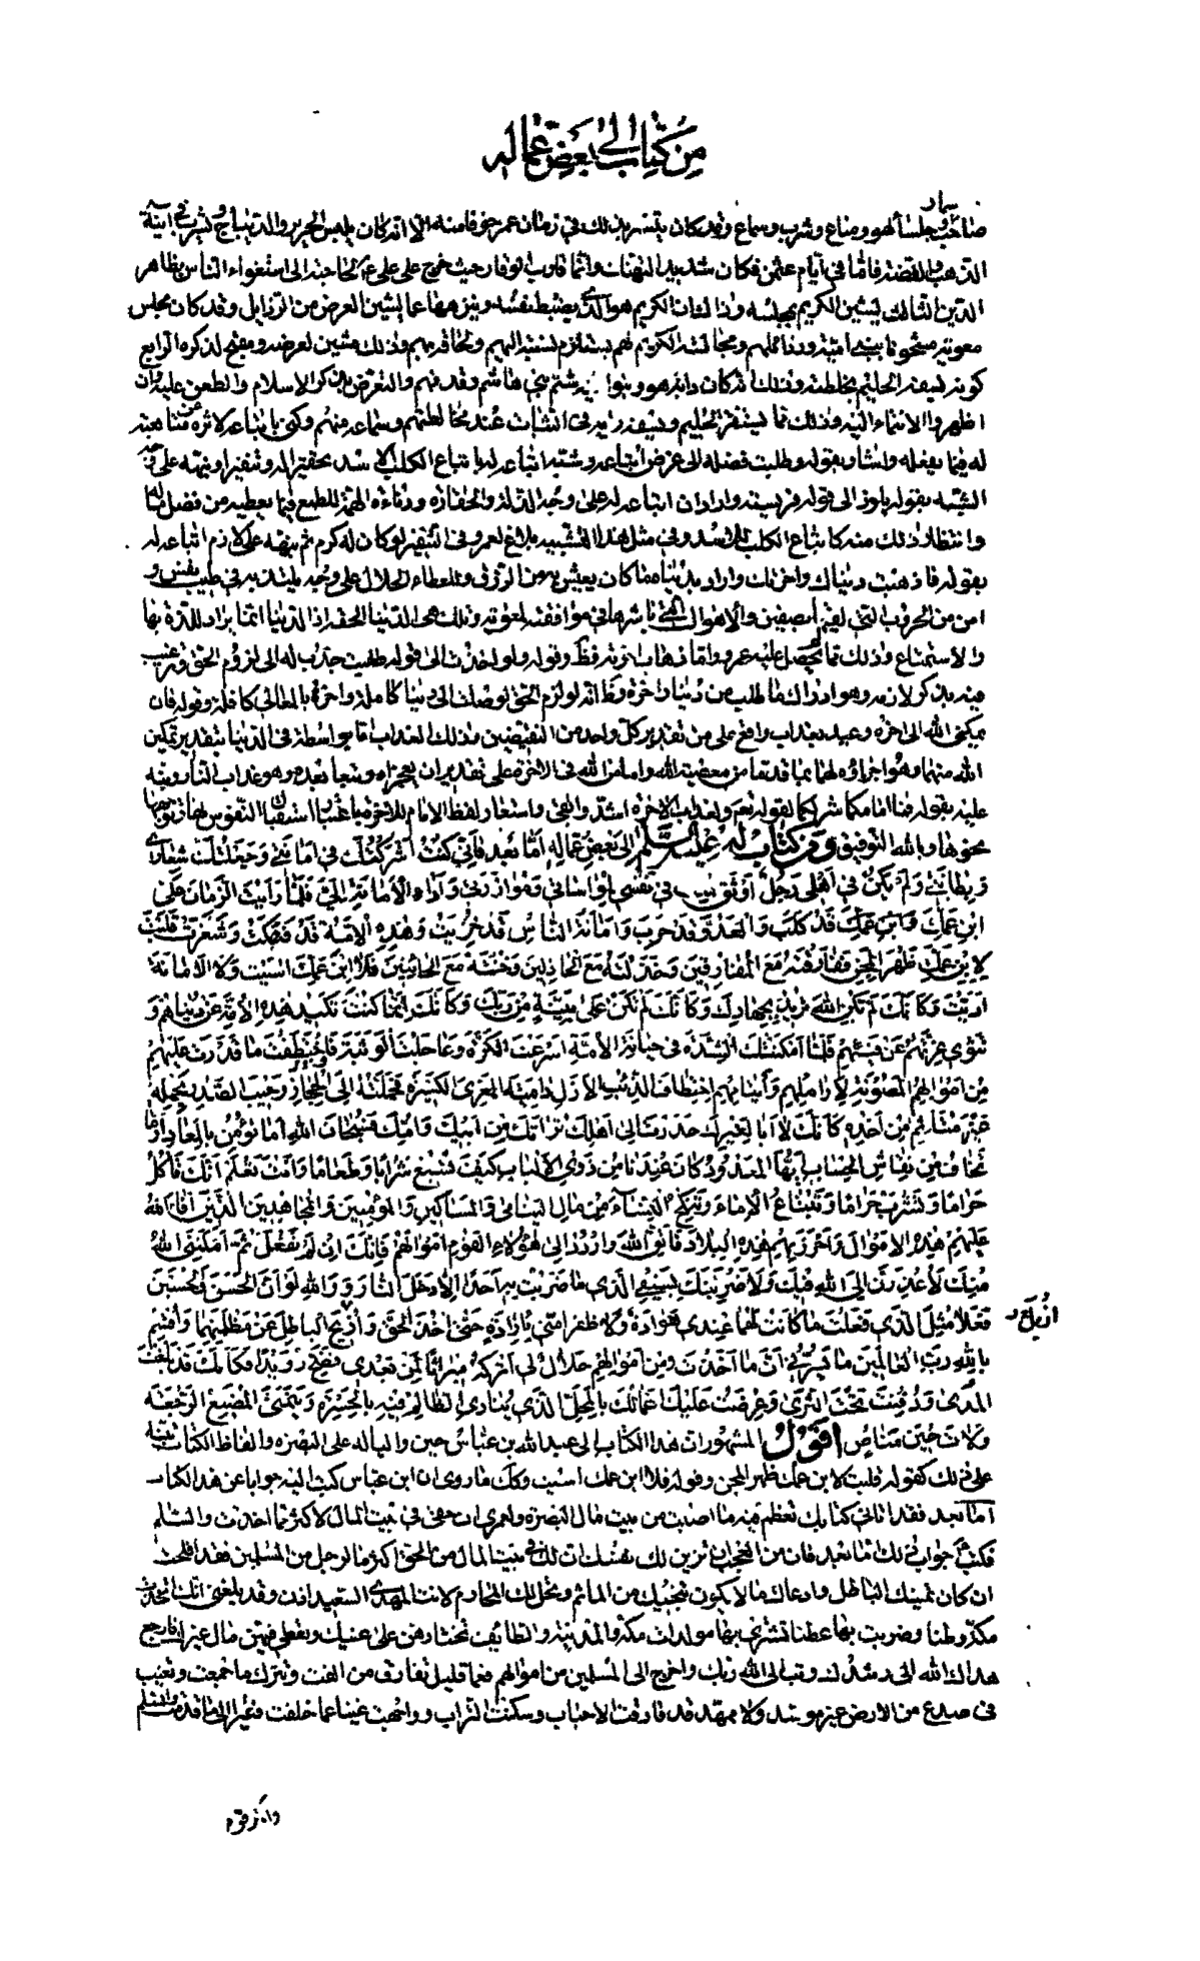 من كتاب له الى بعض عماله
سمار
صاحب جلساء لهو ومناع وشرب وسماع وقد كان يتستر بذلك في زمان عمر خوفا منه الا انه كان يلبس الحرير والديباج ويشرب في آنية
الذهب والفضة فاما في ايام عثمن فكان شديد التهتك وانما قارب الوقار حيث خرج على علي لحاجته الى استغواء الناس بظاهر
الدين الثالث يشين الكريم بمجلسه وذلك ان الكريم هو الذي يضبط نفسه وينزهها عما يشين العرض من الرذايل وقد كان مجلس
معوية مشحونا ببني امية ورذائلهم ومجالسة الكريم لهم يستلزم نسبته اليهم ولحاقه بهم وذلك مشين لعرضه ومقبح لذكره الرابع
كونه يسفه الحليم بخلطته وذلك انه كان دابه هو وبنو امية شتم بني هاشم وقذفهم والتعرض بذكر الاسلام والطعن عليه وان
اظهروا الانتماء اليه وذلك مما يستفز الحليم ويسفه رايه في الثبات عند مخالطتهم وسماعه منهم وكنى باتباعه لاثره عن متابعته
له فيما يفعله واشار بقوله وطلبت فضله الى غرض اتباعه وشبه اتباعه له باتباع الكلب الاسد تحقيرا له وتنفيرا ونبه على وجه
الشبه بقوله يلوذ الى قوله فريسته واراد ان اتباعه له على وجه الذلة والحقارة ودناءة الهمة للطمع فيما يعطيه من فضل ماله
وانتظار ذلك منه كاتباع الكلب للاسد وفي مثل هذا التشبيه بلاغ لعمرو في التنفير لو كان له كرم ثم نبهه على لازم اتباعه له
بقوله فاذهبت دنياك واخرتك واراد بدنياه ما كان يعيش به من الرزق والعطاء الحلال على وجه يلتذ به في طيب نفس و
امن من الحروب التي لقيها بصفين والاهوال التي باشرها في موافقته لمعوية وتلك هي الدنيا الحقة اذ الدنيا انما يراد للذة بها
والاستمتاع وذلك مما لم يحصل عليه عمرو واما ذهاب اخرته فظ وقوله ولو اخذت الى قوله طلبت جذب له الى لزوم الحق وترغيب
فيه بذكر لازمه وهو ادراك ما طلب من دنيا واخرة وظ انه لو لزم الحق لوصل الى دنيا كاملة واخرة بالمعالي كافلة وقوله فان
يمكني الله الى اخره وعيد بعذاب واقع على من تقدير كل واحد من النقيضين وذلك العذاب اما بواسطته في الدنيا بتقدير تمكين
الله منهما وهو اجزاؤه لهما بما قدما من معصية الله واما من الله في الاخرة على تقدير ان يعجزاه ويبقيا بعده وهو عذاب النار ونبه
عليه بقوله فما امامكما شر لكما لقوله تعم ولعذاب الاخرة اشد وابقى واستعار لفظ الامام للاخرة باعتبار استقبال النفوس لها وتوجهها
نحوها وبالله التوفيق ومن كتاب له عليه السلم الى بعض عماله اما بعد فاني كنت اشركتك في امانتي وجعلتك شعاري
وبطانتي ولم يكن في اهلي رجل اوثق منك في نفسي لمواساتي وموازرتي واداء الامانة الي فلما رايت الزمان على
ابن عمك قد كلب والعدو قد حرب وامانة الناس قد خزيت وهذه الامة قد فنكت وشغرت قلبت
لابن عمك ظهر المجن ففارقته مع المفارقين وخذلته مع الخاذلين وخنته مع الخائنين فلا ابن عمك اسيت ولا الامانة
اديت وكانك لم تكن الله تريد بجهادك وكانك لم تكن على بينة من ربك وكانك انما كنت تكيد هذه الامة عن دنياهم و
تنوي غرتهم عن فيئهم فلما امكنتك الشدة في خيانة الامة اسرعت الكرة وعاجلت الوثبة فاختطفت ما قدرت عليه
من اموالهم المصونة لاراملهم وايتامهم اختطاف الذئب الازل دامية المعزى الكسيرة فحملته الى الحجاز رحيب الصدر بحمله
غير متاثم من اخذه كانك لا ابا لغيرك حدرت الى اهلك تراثك من ابيك وامك فسبحان الله اما تؤمن بالمعاد اوما
تخاف من نقاش الحساب ايها المعدود كان عندنا من ذوي الالباب كيف تسيغ شرابا وطعاما وانت تعلم انك تاكل
حراما وتشرب حراما وتبتاع الاماء وتنكح النساء من مال اليتامى والمساكين والمؤمنين والمجاهدين الذين افاء الله
عليهم هذه الاموال واحرز بهم هذه البلاد فاتق الله واردد الى هؤلاء القوم اموالهم فانك ان لم تفعل ثم امكنني الله
منك لاعذرن الى الله فيك ولاضربنك بسيفي الذي ما ضربت به احدا الا دخل النار ووالله لو ان الحسن والحسين
فعلا مثل الذي فعلت ما كانت لهما عندي هوادة ولا ظفرا مني بارادة حتى اخذ الحق وازيح الباطل عن مظلمتهما واقسم
بالله رب العالمين ما يسرني ان ما اخذت من اموالهم حلال لي اتركه ميراثا لمن بعدي فضح رويدا فكانك قد بلغت
المدى ودفنت تحت الثرى وعرضت عليك اعمالك بالمحل الذي ينادي الظالم فيه بالحسرة ويتمنى المضيع الرجعة
ولات حين مناص اقول المشهور ان هذا الكتاب الى عبد الله بن عباس حين والياله على البصرة والفاظ الكتاب تنبه
على ذلك كقوله قلبت لابن عمك ظهر المجن وقوله فلا ابن عمك اسيت وكك ما روى ان ابن عباس كتب اليه جوابا عن هذا الكتاب
اما بعد فقد اتاني كتابك تعظم فيه ما اصبت من بيت مال البصرة ولعمري ان حقي في بيت المال لاكثر مما اخذت والسلم
فكتب جواب ذلك اما بعد فان من العجب ان تزين لك نفسك ان لك في بيت المال من الحق اكثر مما لرجل من المسلمين فقد افلحت
ان كان تمنيك الباطل وادعاك ما لا يكون تنجيك من الماثم وتحل لك المحارم لانت المهدي السعيد اذن وقد بلغني انك اتخذت
مكة وطنا وضربت بها عطنا تشتري بها مولدات مكة والمدينة والطايف تختارهن على عينك وتعطي فيهن مال غيرك فارجع
هداك الله الى رشدك وتب الى الله ربك واخرج الى المسلمين من اموالهم فعما قليل تفارق من الفت وتترك ما جمعت وتغيب
في صدع من الارض غير موسد ولا ممهد قد فارقت الاحباب وسكنت التراب وواجهت غنيا عما خلفت فقيرا الى ما قدمت والسلم